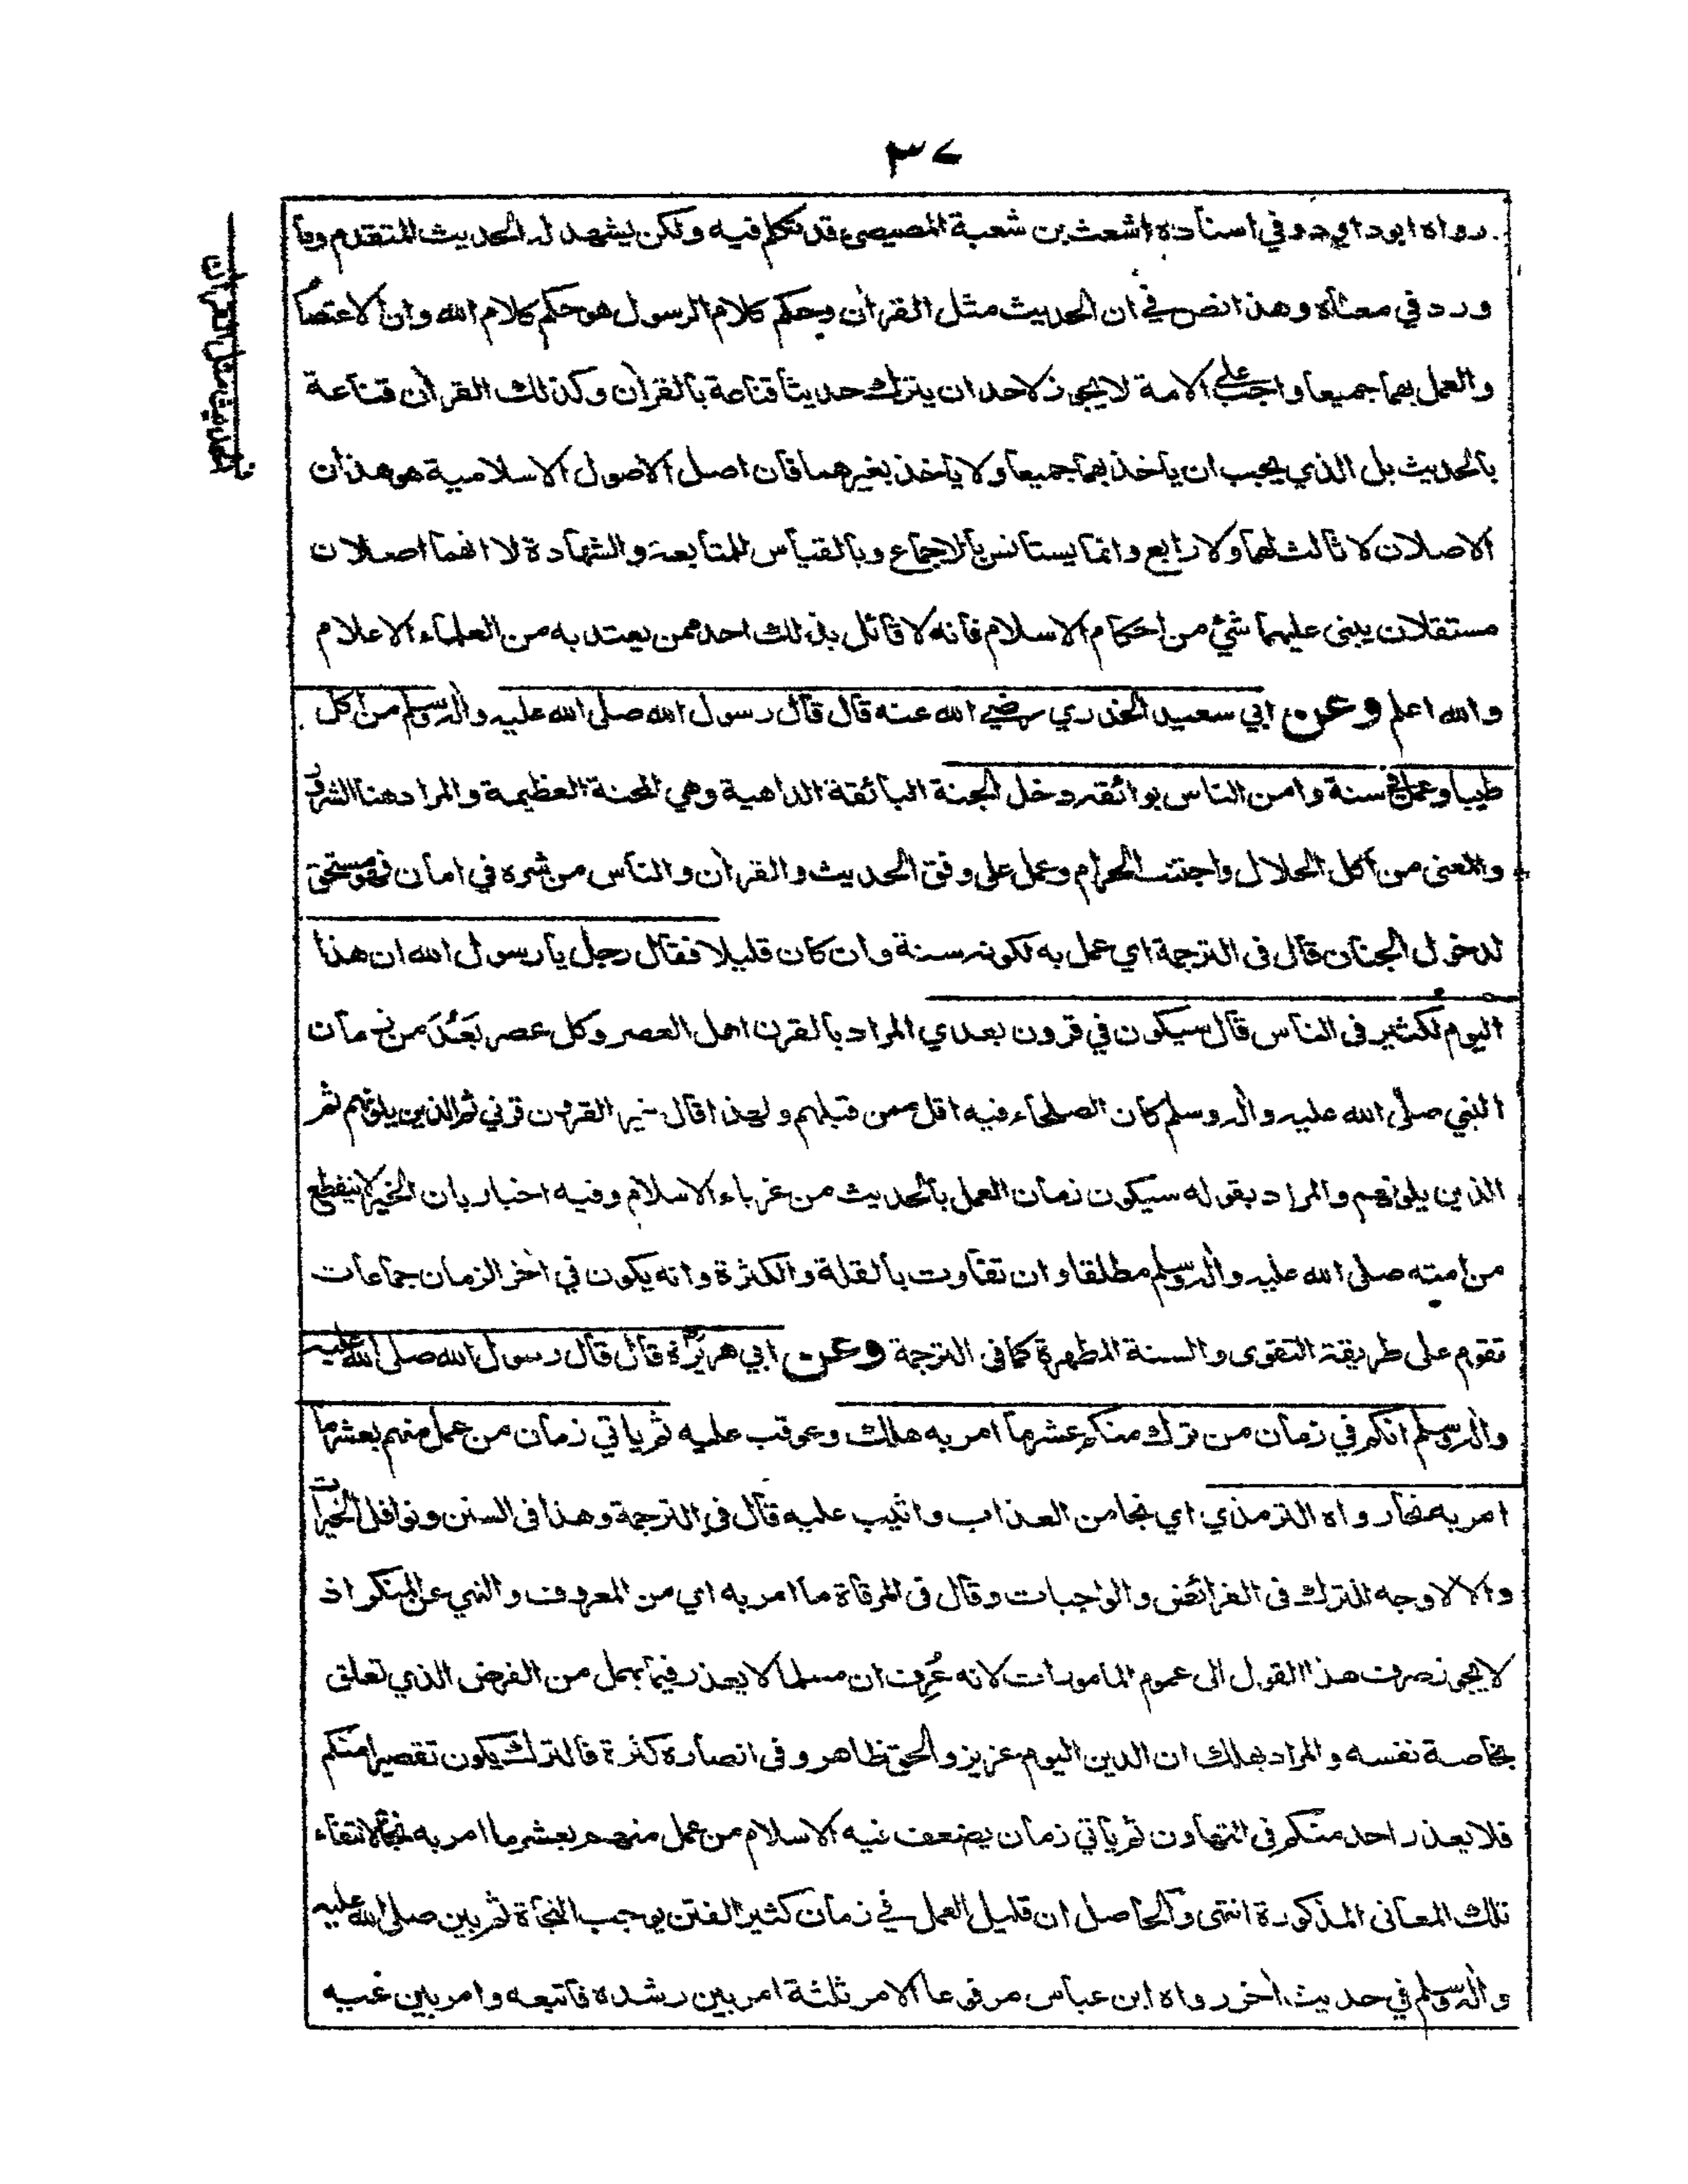 ٣٧
رواه ابوداود وفي اسناده اشعث بن شعبة المصيصي قد تكلم فيه ولكن يشهد له الحديث المتقدم وما
ورد في معناه وهذا نص في ان الحديث مثل القرآن وحكم كلام الرسول هو حكم كلام الله وان الاعتصام
والعمل بهما جميعا واجب على الامة لا يجوز لاحد ان يترك حديثا قناعة بالقرآن وكذلك القرآن قناعة
بالحديث بل الذي يجب ان ياخذ بهما جميعا ولا ياخذ بغيرهما فان اصل الاصول الاسلامية هو هذان
الاصلان لا ثالث لهما ولا رابع وانما يستانس بالاجماع وبالقياس للمتابعة والشهادة لا انهما اصلان
مستقلان يبنى عليهما شئ من احكام الاسلام فانه لا قائل بذلك احد ممن يعتد به من العلماء الاعلام
والله اعلم وعن ابي سعيد الخدري رضي الله عنه قال قال رسول الله صلى الله عليه وآله وسلم من اكل
طيبا وعمل في سنة وامن الناس بوائقه دخل الجنة البائقة الداهية وهي المحنة العظيمة والمراد هنا الشرور
والمعنى من اكل الحلال واجتنب الحرام وعمل على وفق الحديث والقرآن والناس من شره في امان فهو مستحق
لدخول الجنان قال في الترجمة اي عمل به لكونه سنة وان كان قليلا فقال رجل يا رسول الله ان هذا
اليوم لكثير في الناس قال سيكون في قرون بعدي المراد بالقرن اهل العصر وكل عصر بَعُدَ من زمان
النبي صلى الله عليه وآله وسلم كان الصلحاء فيه اقل ممن قبلهم ولهذا قال خير القرون قرني ثم الذين يلونهم ثم
الذين يلونهم والمراد بقوله سيكون زمان العمل بالحديث من غرباء الاسلام وفيه اخبار بان الخير لا ينقطع
من امته صلى الله عليه وآله وسلم مطلقا وان تفاوت بالقلة والكثرة وانه يكون في آخر الزمان جماعات
تقوم على طريقة التقوى والسنة المطهرة كما في الترجمة وعن ابي هريرة قال قال رسول الله صلى الله عليه
وآله وسلم انكم في زمان من ترك منكم عشر ما امر به هلك وعوقب عليه ثم ياتي زمان من عمل منهم بعشر ما
امر به نجا رواه الترمذي اي نجا من العذاب واثيب عليه قال في الترجمة وهذا في السنن ونوافل الخيرات
والا لا وجه للترك في الفرائض والواجبات وقال في المرقاة ما امر به اي من المعروف والنهي عن المنكر اذ
لا يجوز صرف هذا القول الى عموم المامورات لانه عُرِف ان مسلما لا يعذر فيما يهمل من الفرض الذي تعلق
بخاصة نفسه والمراد بهلك ان الدين اليوم عزيز والحق ظاهر وفي انصاره كثرة فالترك يكون تقصيرا منكم
فلا يعذر احد منكم في التهاون ثم ياتي زمان يضعف فيه الاسلام من عمل منهم بعشر ما امر به نجا لانتفاء
تلك المعانى المذكورة انتهى والحاصل ان قليل العمل في زمان كثير الفتن يوجب النجاة ثم بين صلى الله عليه
وآله وسلم في حديث آخر رواه ابن عباس مرفوعا الامر ثلثة امر بين رشده فاتبعه وامر بين غيه
الحديث مثل القرآن